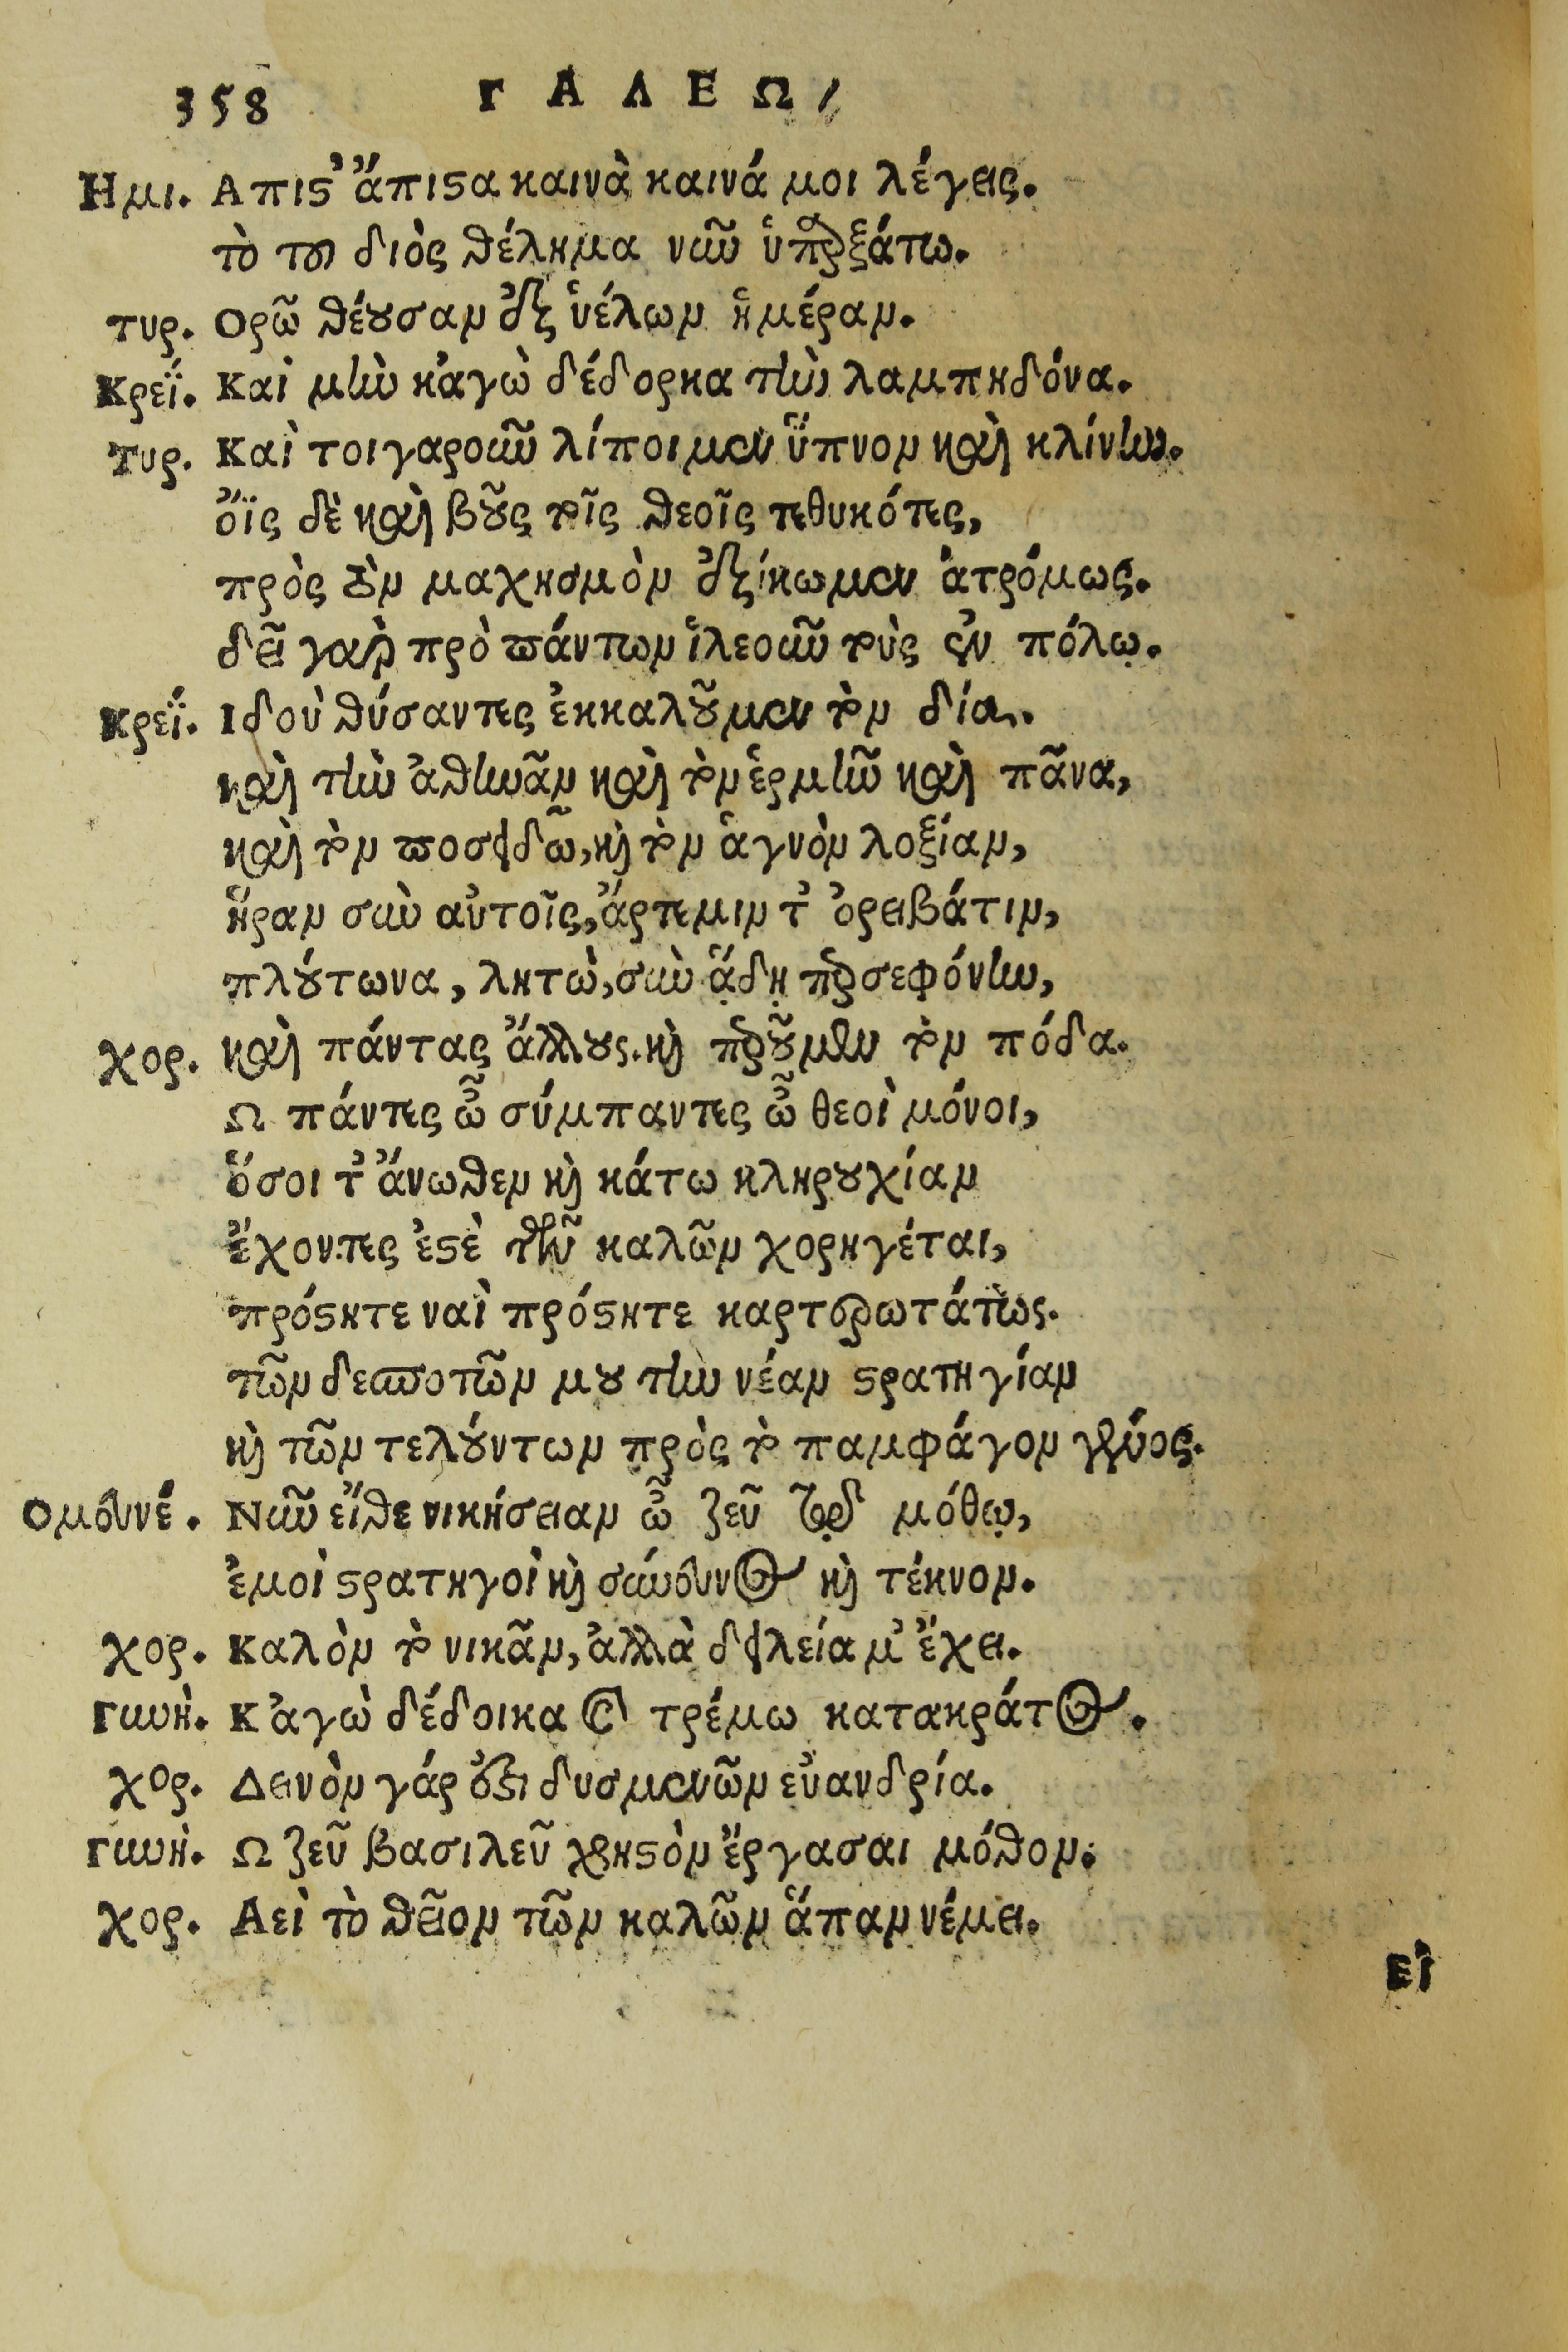 358 ΓΑΛΕΩ
Ημι. Απιϛ᾽ ἄπιϛα καινὰ καινά μοι λέγεις.
τὸ τοῦ διὸς θέλημα νῶν ὑπαρξάτω.
Τυρ. Ορῶ θέουσαν ἐξ ὑέλων ἡμέραν.
Κρεΐ. Καὶ μὴν κἀγὼ δέδορκα τὴν λαμπηδόνα.
Τυρ. Καὶ τοιγαροῦν λίποιμεν ὕπνον καὶ κλίνην.
ὄϊς δὲ καὶ βοῦς τοῖς θεοῖς τεθυκότες,
πρὸς τὸν μαχησμὸν ἐξίκωμεν ἀτρόμως.
δεῖ γὰρ πρὸ πάντων ἱλεοῦν τοὺς ἐν πόλῳ.
Κρεΐ. Ιδοὺ θύσαντες ἐκκαλοῦμεν τὸν δία.
καὶ τὴν ἀθηνᾶν καὶ τὸν ἑρμῆν καὶ πᾶνα,
καὶ τὸν ποσειδῶ, καὶ τὸν ἁγνὸν λοξίαν,
ἥραν σὺν αὐτοῖς, ἄρτεμιν τ᾽ ὀρειβάτιν,
πλούτωνα, λητὼ, σὺν ᾅδῃ προσεφόνην,
Χορ. καὶ πάντας ἄλλους. καὶ προῦμεν τὸν πόδα.
Ω πάντες ὦ σύμπαντες ὦ θεοὶ μόνοι,
ὅσοι τ᾽ ἄνωθεν καὶ κάτω κληρουχίαν
ἔχοντες ἐϛὲ τῶν καλῶν χορηγέται,
πρόϛητε ναὶ πρόϛητε καρτερωτάτως.
τῶν δεσποτῶν μου τὴν νέαν ϛρατηγίαν
καὶ τῶν τελούντων πρὸς τὸ παμφάγον γένος.
Ομόυνέ. Νῦν εἴθε νικήσειαν ὦ ζεῦ τῷδε μόθῳ,
ἐμοὶ ϛρατηγοὶ καὶ σύνευνος καὶ τέκνον.
Χορ. Καλὸν τὸ νικᾶν, ἀλλὰ δειλεία μ᾽ ἔχει.
Γυνὴ. Κἀγὼ δέδοικα καὶ τρέμω κατακράτος.
Χορ. Δεινὸν γάρ ἐϛι δυσμενῶν εὐανδρία.
Γυνὴ. Ω ζεῦ βασιλεῦ χρηϛὸν ἔργασαι μόθον.
Χορ. Αεὶ τὸ θεῖον τῶν καλῶν ἅπαν νέμει.
Εἰ